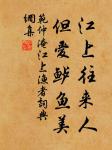 江上往来人
但爱鲈鱼美
范仲淹江上渔者词典
网集